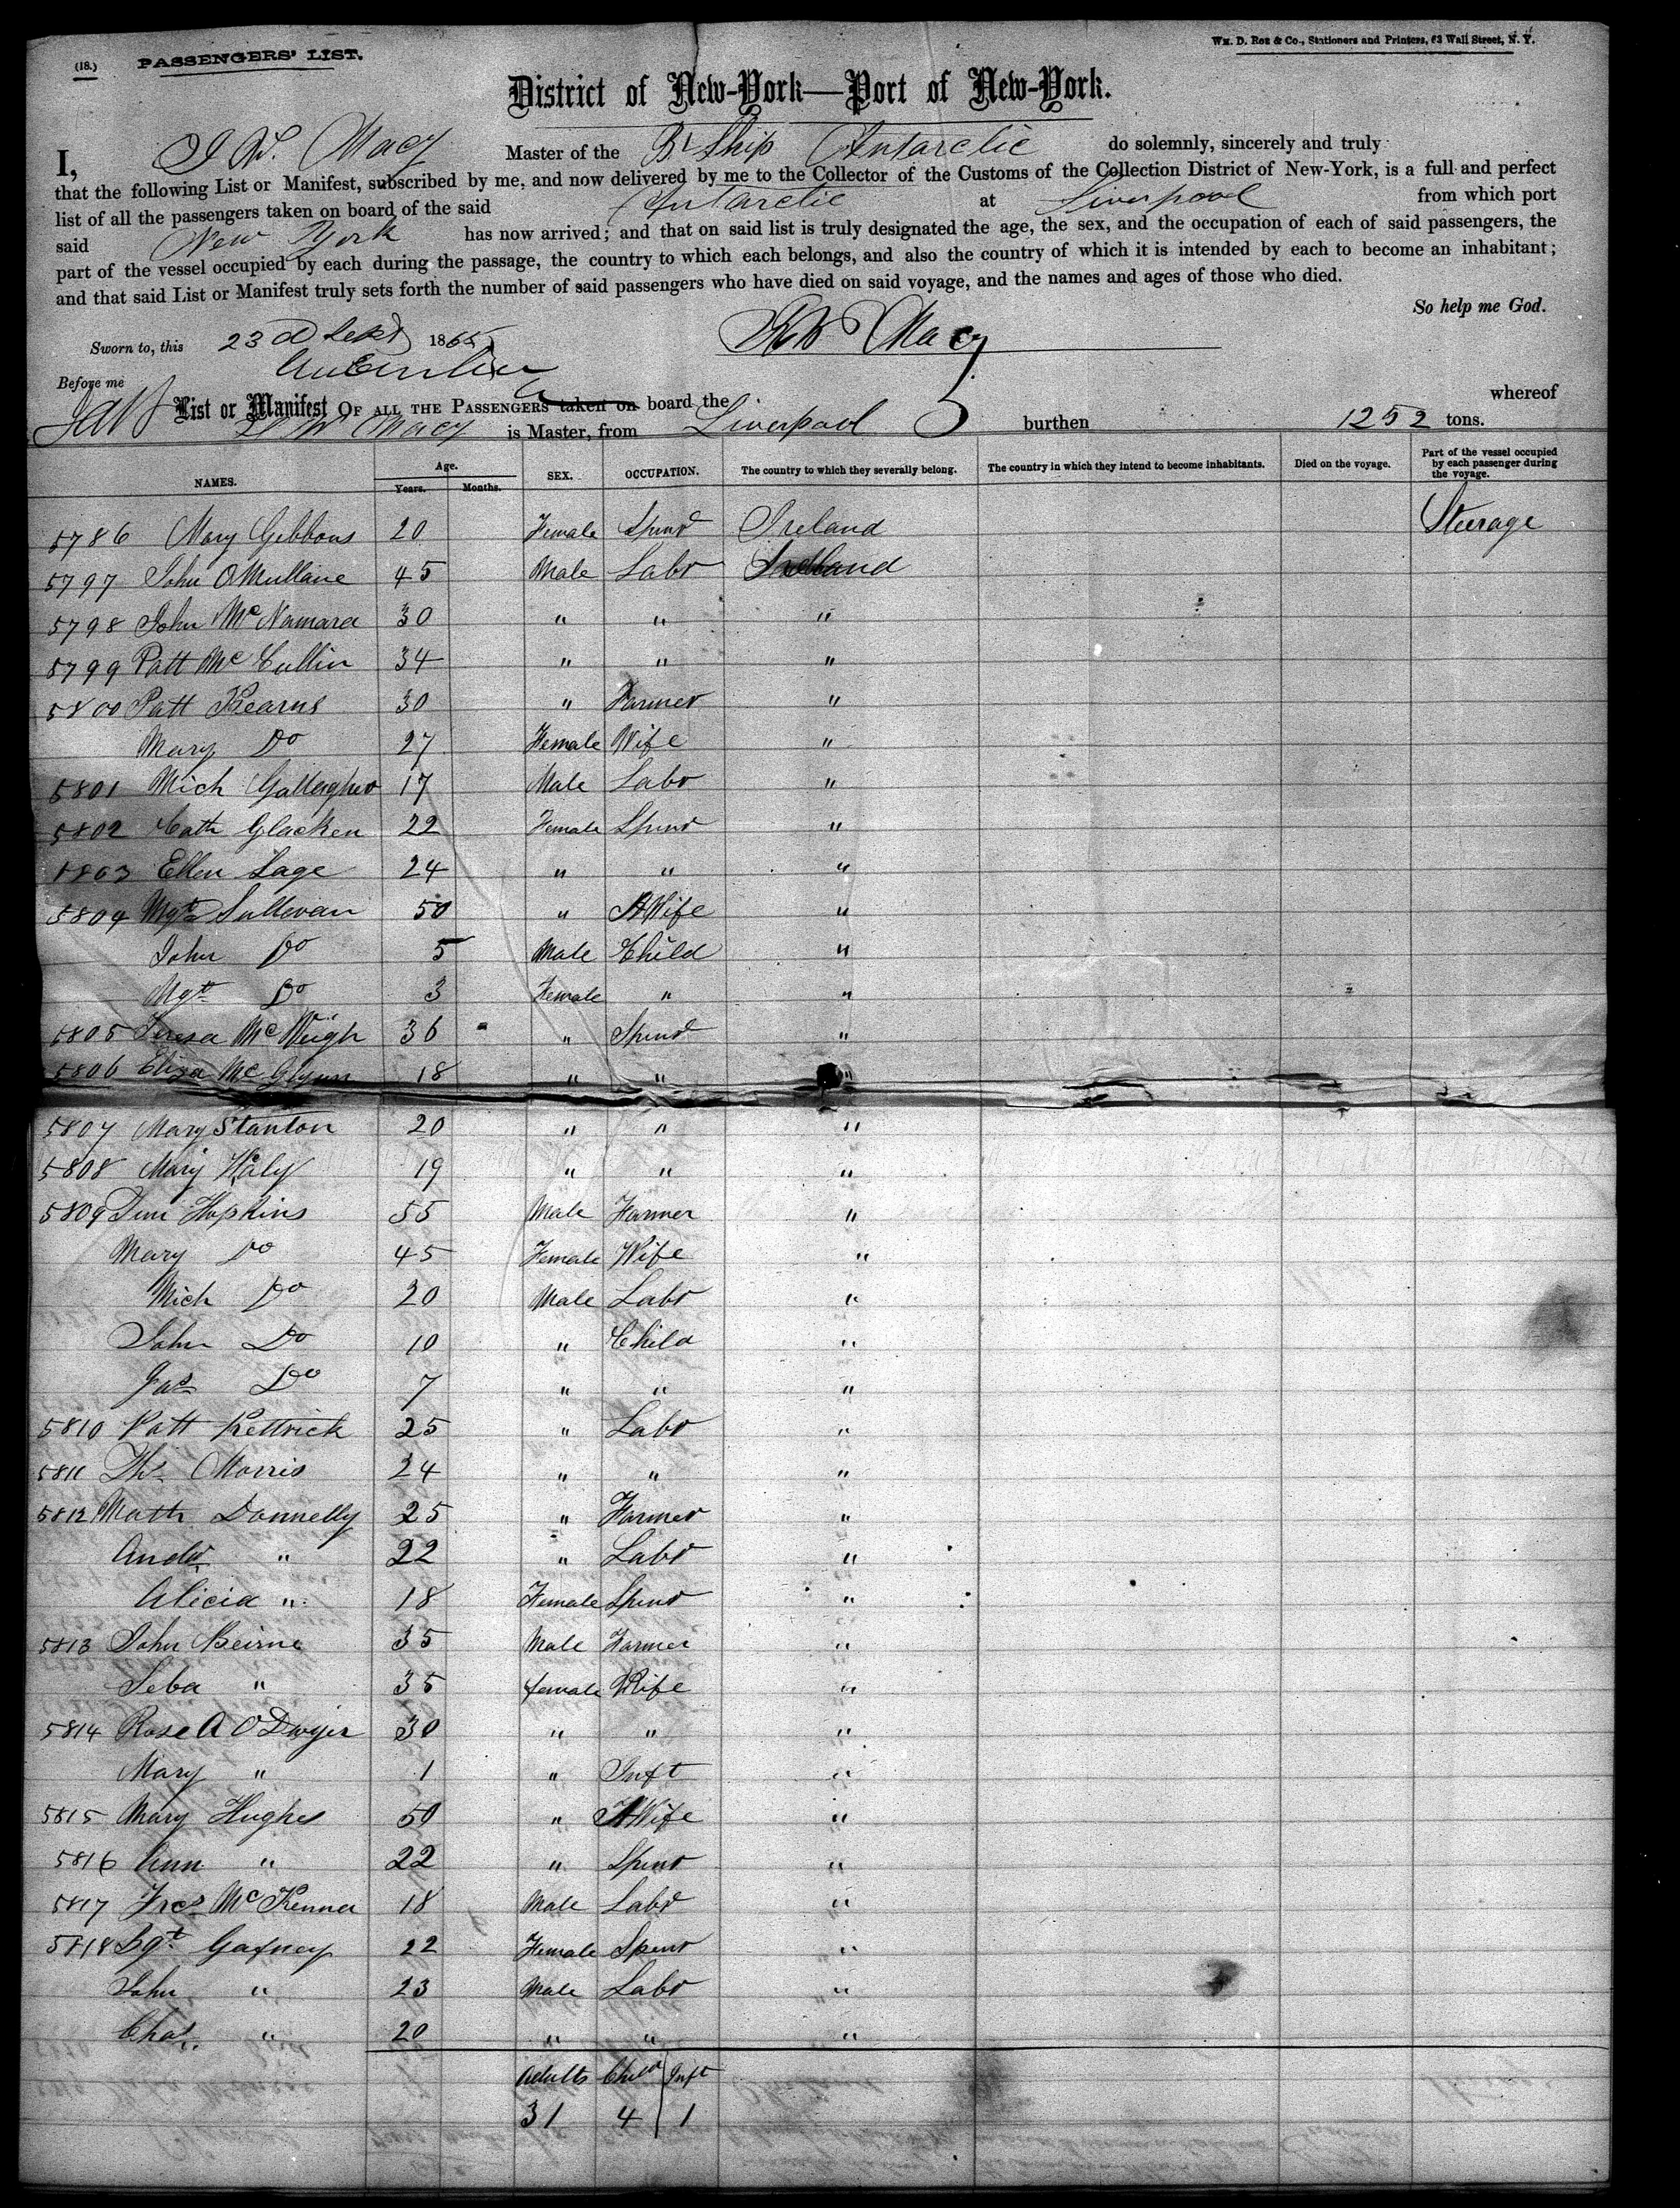 (18.) PASSENGERS' LIST.
Wm. D. Roe & Co., Stationers and Printers, 63 Wall Street, N. Y.
District of New-York—Port of New-York.
I, Macy Master of the Br Ship Antarctic do solemnly, sincerely and truly
that the following List or Manifest, subscribed by me, and now delivered by me to the Collector of the Customs of the Collection District of New-York, is a full and perfect
list of all the passengers taken on board of the said Antarctic at Liverpool from which port
said New York has now arrived; and that on said list is truly designated the age, the sex, and the occupation of each of said passengers, the
part of the vessel occupied by each during the passage, the country to which each belongs, and also the country of which it is intended by each to become an inhabitant;
and that said List or Manifest truly sets forth the number of said passengers who have died on said voyage, and the names and ages of those who died.
So help me God.
Sworn to, this 23d Sept 1865 Macy
Before me
List or Manifest OF ALL THE PASSENGERS taken on board the whereof
Macy is Master, from Liverpool burthen 1252 tons.
NAMES. Age. Years. Months. SEX. OCCUPATION. The country to which they severally belong. The country in which they intend to become inhabitants. Died on the voyage. Part of the vessel occupied by each passenger during the voyage.
5786 Mary Gibbons 20 Female Spinr Ireland Steerage
5797 John O'Mullane 45 Male Labr Ireland
5798 John McNamara 30 " " "
5799 Patt McCullin 34 " " "
5800 Patt Kearns 30 " Farmer "
Mary Do 27 Female Wife "
5801 Mich Gallagher 17 Male Labr "
5802 Cath Glacken 22 Female Spinr "
5803 Ellen Lage 24 " " "
5804 Mgt Sullivan 50 " H Wife "
John Do 5 Male Child "
Mgt Do 3 Female " "
5805 Teresa McVeigh 36 " Spinr "
5806 Eliza McGlynn 18 " " "
5807 Mary Stanton 20 " " "
5808 Mary Haly 19 " " "
5809 Tim Hopkins 55 Male Farmer "
Mary Do 45 Female Wife "
Mich Do 20 Male Labr "
John Do 10 " Child "
Jas Do 7 " " "
5810 Patt Kettrick 25 " Labr "
5811 Ths Morris 24 " " "
5812 Matth Donnelly 25 " Farmer "
Andw " 22 " Labr "
Alicia " 18 Female Spinr "
5813 John Beirne 35 Male Farmer "
Seba " 35 female Wife "
5814 Rose A O'Dwyer 30 " " "
Mary " 1 " Inft "
5815 Mary Hughes 50 " H Wife "
5816 Ann " 22 " Spinr "
5817 Frcs McKenna 18 Male Labr "
5818 Bgt Gafney 22 Female Spinr "
John " 23 Male Labr "
Chas. " 20 " " "
Adults Child Inft
31 4 1